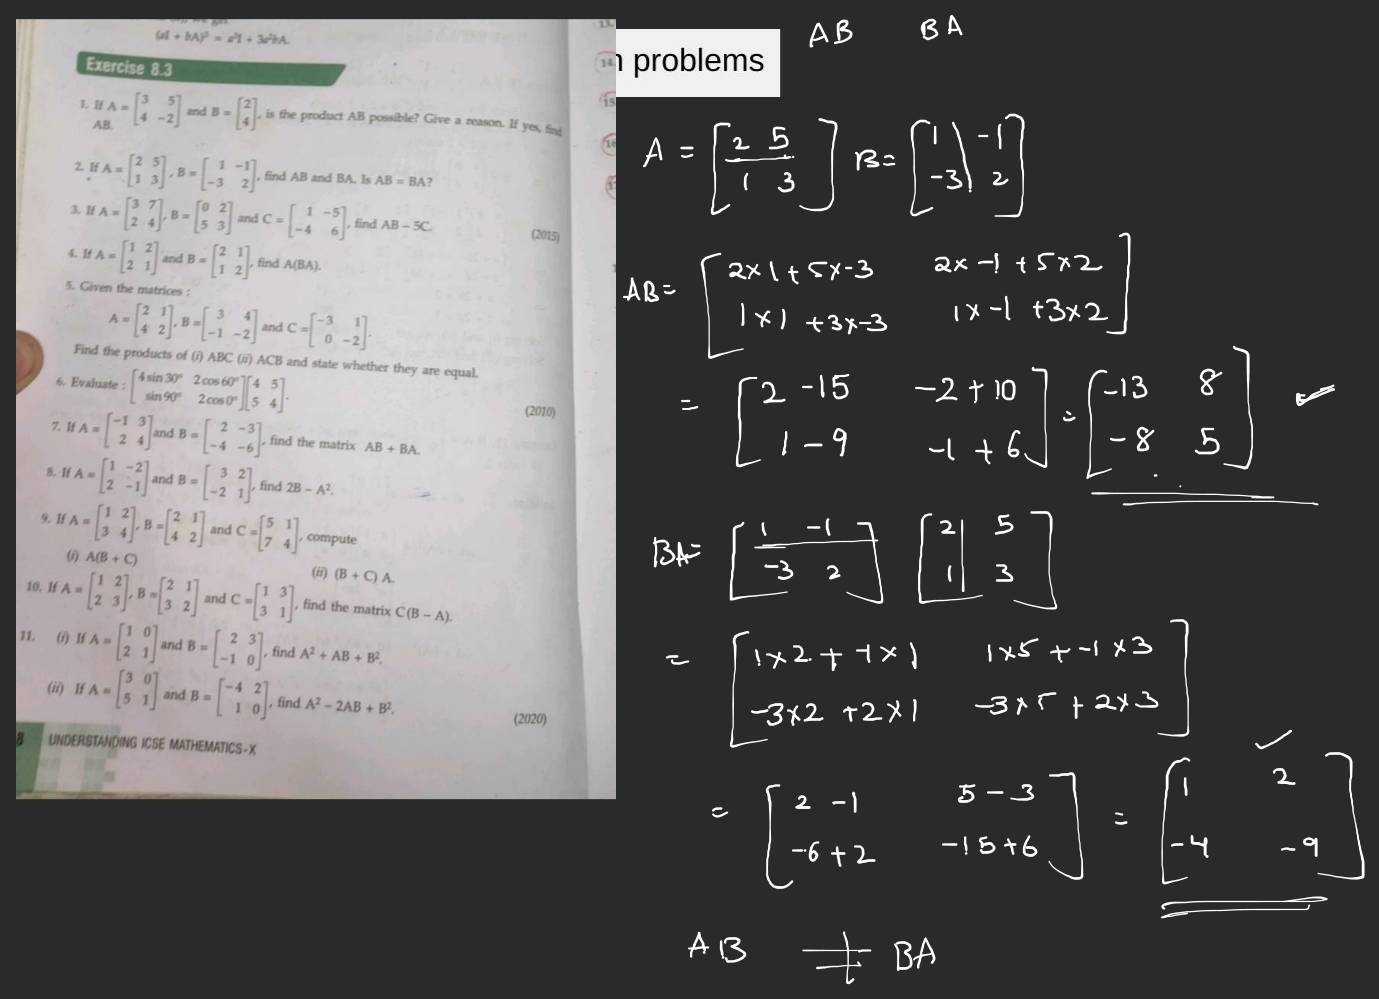 (aI + bA)³ = a³I + 3a²bA.
Exercise 8.3
1. If A = [3 5; 4 -2] and B = [2; 4], is the product AB possible? Give a reason. If yes, find
AB.
2. If A = [2 5; 1 3], B = [1 -1; -3 2], find AB and BA. Is AB = BA?
3. If A = [3 7; 2 4], B = [0 2; 5 3] and C = [1 -5; -4 6], find AB – 5C.
(2015)
4. If A = [1 2; 2 1] and B = [2 1; 1 2], find A(BA).
5. Given the matrices :
A = [2 1; 4 2], B = [3 4; -1 -2] and C = [-3 1; 0 -2].
Find the products of (i) ABC (ii) ACB and state whether they are equal.
6. Evaluate : [4 sin 30° 2 cos 60°; sin 90° 2 cos 0°] [4 5; 5 4].
(2010)
7. If A = [-1 3; 2 4] and B = [2 -3; -4 -6], find the matrix AB + BA.
8. If A = [1 -2; 2 -1] and B = [3 2; -2 1], find 2B – A².
9. If A = [1 2; 3 4], B = [2 1; 4 2] and C = [5 1; 7 4], compute
(i) A(B + C)
(ii) (B + C) A.
10. If A = [1 2; 2 3], B = [2 1; 3 2] and C = [1 3; 3 1], find the matrix C(B – A).
11. (i) If A = [1 0; 2 1] and B = [2 3; -1 0], find A² + AB + B².
(ii) If A = [3 0; 5 1] and B = [-4 2; 1 0], find A² – 2AB + B².
(2020)
8 UNDERSTANDING ICSE MATHEMATICS-X
13.
14.
15
16
problems
AB BA
A = [2 5; 1 3] B = [1 -1; -3 2]
AB = [2×1+5×-3 2×-1+5×2; 1×1+3×-3 1×-1+3×2]
= [2-15 -2+10; 1-9 -1+6] = [-13 8; -8 5]
BA = [1 -1; -3 2] [2 5; 1 3]
= [1×2+-1×1 1×5+-1×3; -3×2+2×1 -3×5+2×3]
= [2-1 5-3; -6+2 -15+6] = [1 2; -4 -9]
AB ≠ BA